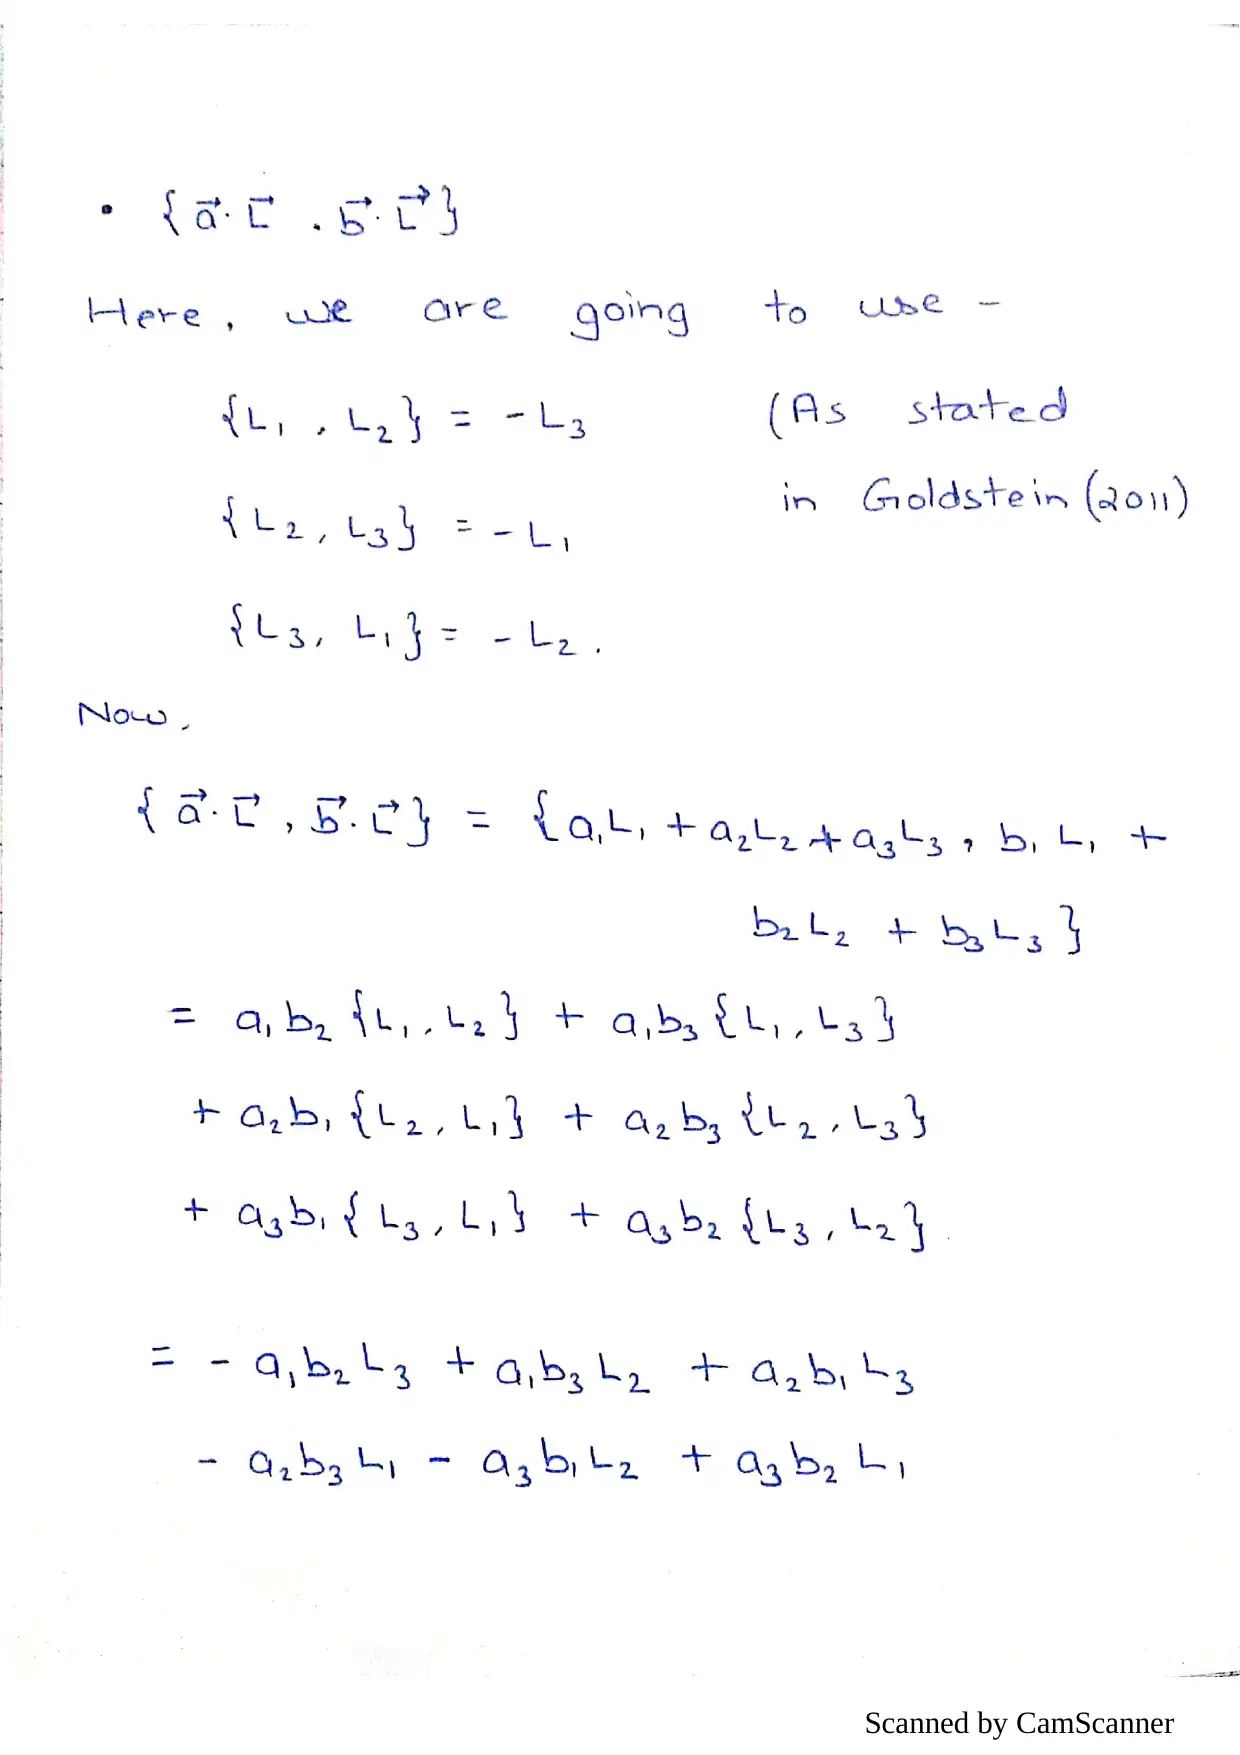 • {a⃗·L⃗ , b⃗·L⃗}
Here, we are going to use –
{L₁ , L₂} = -L₃ (As stated
in Goldstein (2011)
{L₂, L₃} = -L₁
{L₃, L₁} = -L₂.
Now,
{a⃗·L⃗ , b⃗·L⃗} = {a₁L₁ + a₂L₂ + a₃L₃ , b₁L₁ +
b₂L₂ + b₃L₃}
= a₁b₂ {L₁, L₂} + a₁b₃ {L₁, L₃}
+ a₂b₁ {L₂, L₁} + a₂b₃ {L₂, L₃}
+ a₃b₁ {L₃, L₁} + a₃b₂ {L₃, L₂}
= - a₁b₂L₃ + a₁b₃L₂ + a₂b₁L₃
- a₂b₃L₁ - a₃b₁L₂ + a₃b₂L₁
Scanned by CamScanner